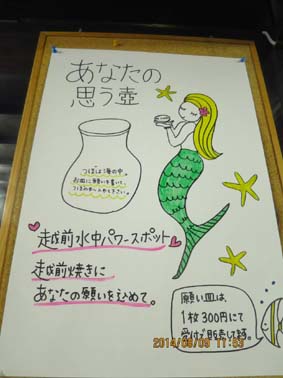 あなたの
思う壺
つぼは海の中
お皿に願いを書いて、
越前水中パワースポット
越前焼きに
あなたの願いをこめて。
願い皿は、
1枚300円にて
受付で販売してます。
2014/06/09 11:53